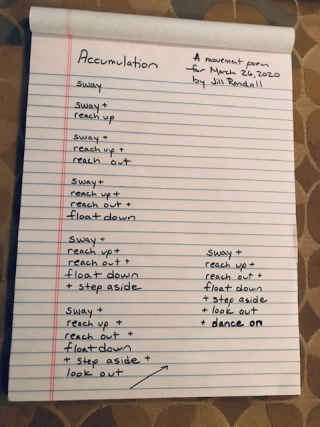 Accumulation
A movement poem
for March 26, 2020
by Jill Randall
sway
sway +
reach up
sway +
reach up +
reach out
sway +
reach up +
reach out +
float down
sway +
reach up +
reach out +
float down
+ step aside
sway +
reach up +
reach out +
float down
+ step aside +
look out
sway +
reach up +
reach out +
float down
+ step aside
+ look out
+ dance on